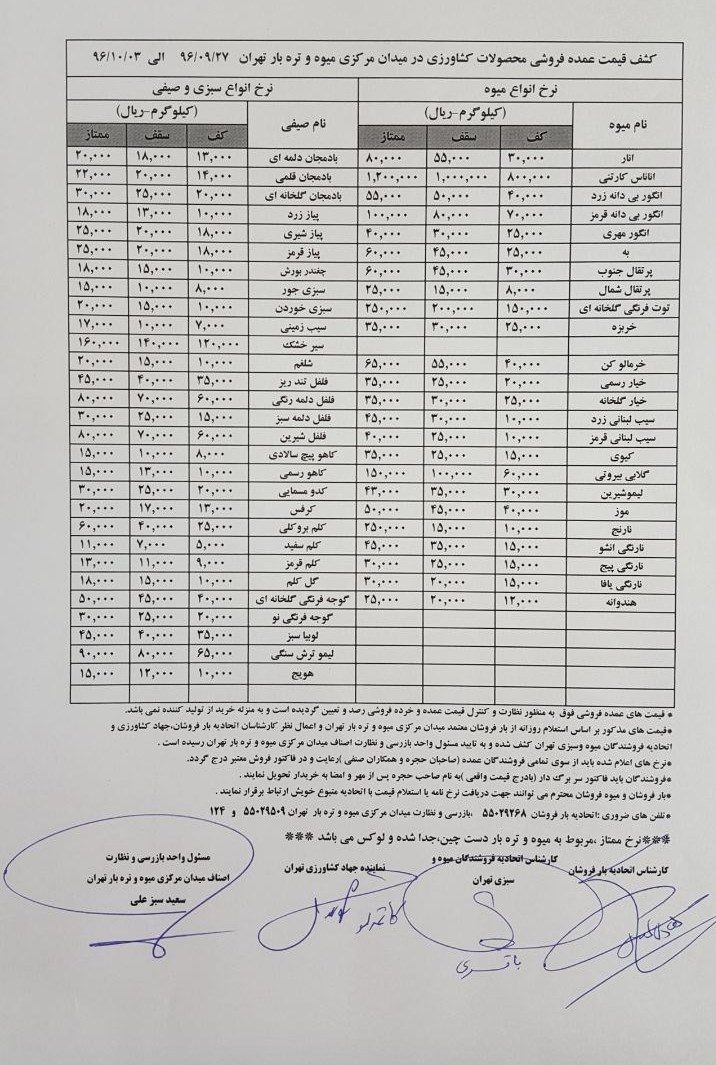 کشف قیمت عمده فروشی محصولات کشاورزی در میدان مرکزی میوه و تره بار تهران ۹۶/۰۹/۲۷ الی ۹۶/۱۰/۰۳
نرخ انواع میوه نرخ انواع سبزی و صیفی
نام میوه (کیلوگرم-ریال) نام صیفی (کیلوگرم-ریال)
کف سقف ممتاز کف سقف ممتاز
انار ۳۰,۰۰۰ ۵۵,۰۰۰ ۸۰,۰۰۰ بادمجان دلمه ای ۱۳,۰۰۰ ۱۸,۰۰۰ ۲۰,۰۰۰
اناناس کارتنی ۸۰۰,۰۰۰ ۱,۰۰۰,۰۰۰ ۱,۲۰۰,۰۰۰ بادمجان قلمی ۱۴,۰۰۰ ۲۰,۰۰۰ ۲۲,۰۰۰
انگور بی دانه زرد ۴۰,۰۰۰ ۵۰,۰۰۰ ۵۵,۰۰۰ بادمجان گلخانه ای ۲۰,۰۰۰ ۲۵,۰۰۰ ۳۰,۰۰۰
انگور بی دانه قرمز ۷۰,۰۰۰ ۸۰,۰۰۰ ۱۰۰,۰۰۰ پیاز زرد ۱۰,۰۰۰ ۱۳,۰۰۰ ۱۸,۰۰۰
انگور مهری ۲۵,۰۰۰ ۳۰,۰۰۰ ۴۰,۰۰۰ پیاز شیری ۱۸,۰۰۰ ۲۰,۰۰۰ ۲۵,۰۰۰
به ۲۵,۰۰۰ ۴۵,۰۰۰ ۶۰,۰۰۰ پیاز قرمز ۱۸,۰۰۰ ۲۰,۰۰۰ ۲۵,۰۰۰
پرتقال جنوب ۳۰,۰۰۰ ۴۵,۰۰۰ ۶۰,۰۰۰ چغندر بورش ۱۰,۰۰۰ ۱۵,۰۰۰ ۱۸,۰۰۰
پرتقال شمال ۸,۰۰۰ ۱۵,۰۰۰ ۲۵,۰۰۰ سبزی جور ۸,۰۰۰ ۱۰,۰۰۰ ۱۵,۰۰۰
توت فرنگی گلخانه ای ۱۵۰,۰۰۰ ۲۰۰,۰۰۰ ۲۵۰,۰۰۰ سبزی خوردن ۱۰,۰۰۰ ۱۵,۰۰۰ ۲۰,۰۰۰
خربزه ۲۵,۰۰۰ ۳۰,۰۰۰ ۳۵,۰۰۰ سیب زمینی ۷,۰۰۰ ۱۰,۰۰۰ ۱۷,۰۰۰
سیر خشک ۱۲۰,۰۰۰ ۱۴۰,۰۰۰ ۱۶۰,۰۰۰
خرمالو کن ۴۰,۰۰۰ ۵۵,۰۰۰ ۶۵,۰۰۰ شلغم ۱۰,۰۰۰ ۱۵,۰۰۰ ۲۰,۰۰۰
خیار رسمی ۲۰,۰۰۰ ۲۵,۰۰۰ ۳۵,۰۰۰ فلفل تند ریز ۳۵,۰۰۰ ۴۰,۰۰۰ ۴۵,۰۰۰
خیار گلخانه ۲۵,۰۰۰ ۳۰,۰۰۰ ۳۵,۰۰۰ فلفل دلمه رنگی ۶۰,۰۰۰ ۷۰,۰۰۰ ۸۰,۰۰۰
سیب لبنانی زرد ۱۰,۰۰۰ ۳۰,۰۰۰ ۴۵,۰۰۰ فلفل دلمه سبز ۱۵,۰۰۰ ۲۵,۰۰۰ ۳۰,۰۰۰
سیب لبنانی قرمز ۱۰,۰۰۰ ۲۵,۰۰۰ ۴۰,۰۰۰ فلفل شیرین ۶۰,۰۰۰ ۷۰,۰۰۰ ۸۰,۰۰۰
کیوی ۱۵,۰۰۰ ۲۵,۰۰۰ ۳۵,۰۰۰ کاهو پیچ سالادی ۸,۰۰۰ ۱۰,۰۰۰ ۱۵,۰۰۰
گلابی بیروتی ۶۰,۰۰۰ ۱۰۰,۰۰۰ ۱۵۰,۰۰۰ کاهو رسمی ۱۰,۰۰۰ ۱۳,۰۰۰ ۱۵,۰۰۰
لیموشیرین ۳۰,۰۰۰ ۳۵,۰۰۰ ۴۳,۰۰۰ کدو مسمایی ۲۰,۰۰۰ ۲۵,۰۰۰ ۳۰,۰۰۰
موز ۴۰,۰۰۰ ۴۵,۰۰۰ ۵۰,۰۰۰ کرفس ۱۳,۰۰۰ ۱۷,۰۰۰ ۲۰,۰۰۰
نارنج ۱۰,۰۰۰ ۱۵,۰۰۰ ۲۵۰,۰۰۰ کلم بروکلی ۲۵,۰۰۰ ۴۰,۰۰۰ ۶۰,۰۰۰
نارنگی انشو ۱۵,۰۰۰ ۳۵,۰۰۰ ۴۵,۰۰۰ کلم سفید ۵,۰۰۰ ۷,۰۰۰ ۱۱,۰۰۰
نارنگی پیج ۱۵,۰۰۰ ۲۵,۰۰۰ ۳۰,۰۰۰ کلم قرمز ۹,۰۰۰ ۱۱,۰۰۰ ۱۳,۰۰۰
نارنگی یافا ۱۵,۰۰۰ ۲۰,۰۰۰ ۳۰,۰۰۰ گل کلم ۱۰,۰۰۰ ۱۵,۰۰۰ ۱۸,۰۰۰
هندوانه ۱۲,۰۰۰ ۲۰,۰۰۰ ۲۵,۰۰۰ گوجه فرنگی گلخانه ای ۴۰,۰۰۰ ۴۵,۰۰۰ ۵۰,۰۰۰
گوجه فرنگی نو ۲۰,۰۰۰ ۲۵,۰۰۰ ۳۰,۰۰۰
لوبیا سبز ۳۵,۰۰۰ ۴۰,۰۰۰ ۴۵,۰۰۰
لیمو ترش سنگی ۶۵,۰۰۰ ۸۰,۰۰۰ ۹۰,۰۰۰
هویج ۱۰,۰۰۰ ۱۲,۰۰۰ ۱۵,۰۰۰
* قیمت های عمده فروشی فوق به منظور نظارت و کنترل قیمت عمده و خرده فروشی رصد و تعیین گردیده است و به منزله خرید از تولید کننده نمی باشد.
*قیمت های مذکور بر اساس استعلام روزانه از بار فروشان معتمد میدان مرکزی میوه و تره بار تهران و اعمال نظر کارشناسان اتحادیه بار فروشان،جهاد کشاورزی و
اتحادیه فروشندگان میوه وسبزی تهران کشف شده و به تایید مسئول واحد بازرسی و نظارت اصناف میدان مرکزی میوه و تره بار تهران رسیده است .
*نرخ های اعلام شده باید از سوی تمامی فروشندگان عمده (صاحبان حجره و همکاران صنفی )رعایت و در فاکتور فروش معتبر درج گردد.
*فروشندگان باید فاکتور سر برگ دار (بادرج قیمت واقعی )به نام صاحب حجره پس از مهر و امضا به خریدار تحویل نمایند .
*بار فروشان و میوه فروشان محترم می توانند جهت دریافت نرخ نامه یا استعلام قیمت با اتحادیه متبوع خویش ارتباط برقرار نمایند .
*تلفن های ضروری :اتحادیه بار فروشان ۵۵۰۲۹۲۶۸ ،بازرسی و نظارت میدان مرکزی میوه و تره بار تهران ۵۵۰۲۹۵۰۹ و ۱۲۴
***نرخ ممتاز ،مربوط به میوه و تره بار دست چین،جدا شده و لوکس می باشد ***
کارشناس اتحادیه بار فروشان
کارشناس اتحادیه فروشندگان میوه و
سبزی تهران
نماینده جهاد کشاورزی تهران
مسئول واحد بازرسی و نظارت
اصناف میدان مرکزی میوه و تره بار تهران
سعید سبز علی